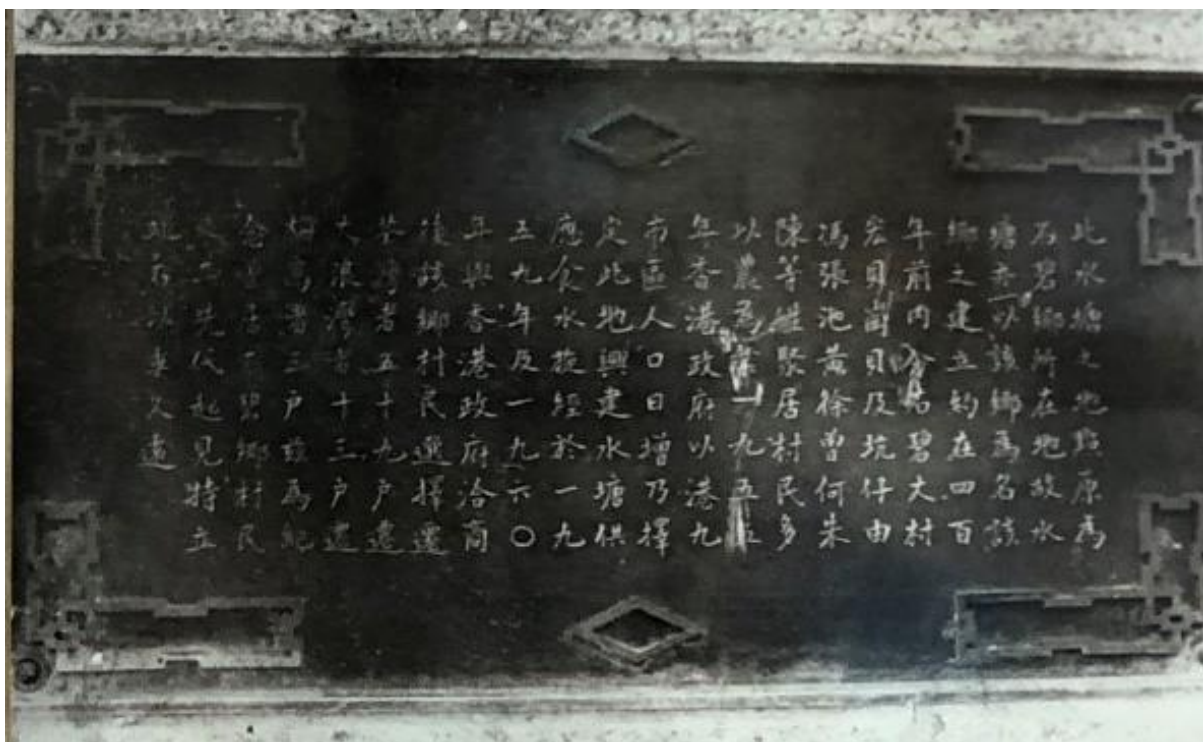 此水塘之地點原為
石碧鄉所在地故水
塘亦以該鄉為名該
鄉之建立約在四百
年前內分石碧大村
宏貝崗貝及坑仔由
馮張池黃徐曾何朱
陳等姓聚居村民多
以農為業一九五五
年香港政府以港九
市區人口日增乃擇
定此地興建水塘供
應食水旋經於一九
五九年及一九六〇
年與香港政府洽商
後該鄉村民選擇遷
荃灣者五十九戶遷
大浪灣者十三戶遷
窩者三戶茲為紀
念石碧鄉村民
之先代起見特立
此石以垂久遠